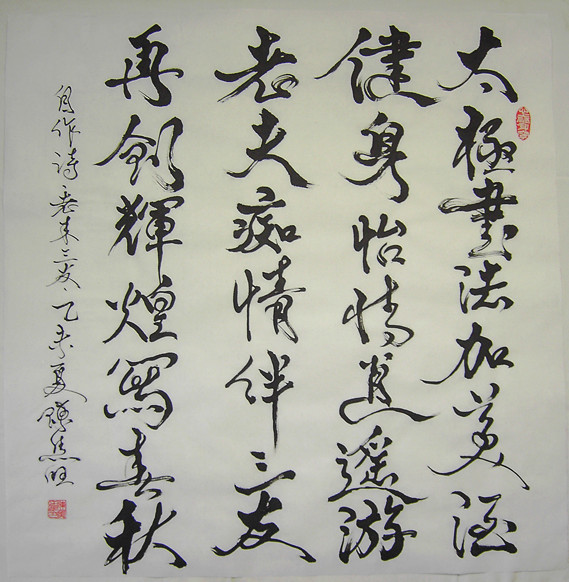 太極書法加美酒
健身怡情逍遙游
老夫痴情伴三友
再創輝煌寫春秋
自作詩老来三友乙未夏